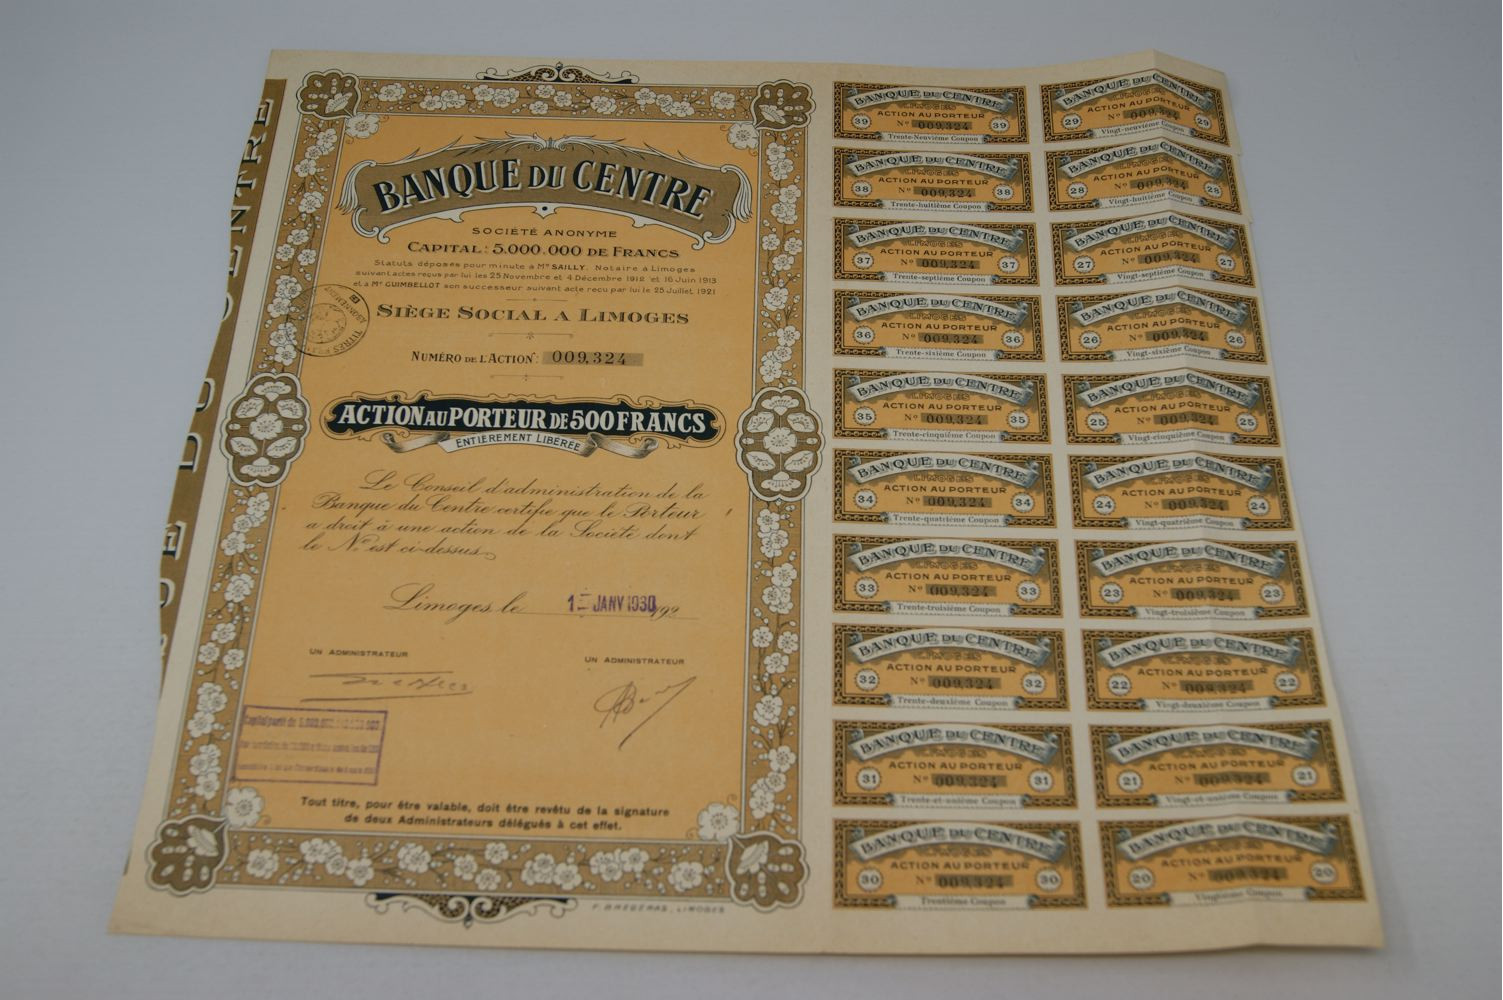 BANQUE DU CENTRE
SOCIÉTÉ ANONYME
CAPITAL: 5.000.000 DE FRANCS
Statuts déposés pour minute à Me SAILLY. Notaire à Limoges
suivant actes reçus par lui les 25 Novembre et 4 Décembre 1912 et 16 Juin 1913
et à Me GUIMBELLOT son successeur suivant acte reçu par lui le 25 Juillet 1921
SIÈGE SOCIAL A LIMOGES
NUMÉRO DE L'ACTION: 009,324
ACTION AU PORTEUR DE 500 FRANCS
ENTIEREMENT LIBÉRÉE
Le Conseil d'administration de la
Banque du Centre certifie que le Porteur
a droit à une action de la Société dont
le No est ci-dessus
Limoges, le 1 JANV 1930 192
UN ADMINISTRATEUR
UN ADMINISTRATEUR
Tout titre, pour être valable, doit être revêtu de la signature
de deux Administrateurs délégués à cet effet.
LIMOGES
BANQUE DU CENTRE
LIMOGES
ACTION AU PORTEUR
39 No 009,324 39
Trente-Neuvième Coupon
BANQUE DU CENTRE
LIMOGES
ACTION AU PORTEUR
29 No 009,324 29
Vingt-neuvième Coupon
BANQUE DU CENTRE
LIMOGES
ACTION AU PORTEUR
38 No 009,324 38
Trente-huitième Coupon
BANQUE DU CENTRE
LIMOGES
ACTION AU PORTEUR
28 No 009,324 28
Vingt-huitième Coupon
BANQUE DU CENTRE
LIMOGES
ACTION AU PORTEUR
37 No 009,324 37
Trente-septième Coupon
BANQUE DU CENTRE
LIMOGES
ACTION AU PORTEUR
27 No 009,324 27
Vingt-septième Coupon
BANQUE DU CENTRE
LIMOGES
ACTION AU PORTEUR
36 No 009,324 36
Trente-sixième Coupon
BANQUE DU CENTRE
LIMOGES
ACTION AU PORTEUR
26 No 009,324 26
Vingt-sixième Coupon
BANQUE DU CENTRE
LIMOGES
ACTION AU PORTEUR
35 No 009,324 35
Trente-cinquième Coupon
BANQUE DU CENTRE
LIMOGES
ACTION AU PORTEUR
25 No 009,324 25
Vingt-cinquième Coupon
BANQUE DU CENTRE
LIMOGES
ACTION AU PORTEUR
34 No 009,324 34
Trente-quatrième Coupon
BANQUE DU CENTRE
LIMOGES
ACTION AU PORTEUR
24 No 009,324 24
Vingt-quatrième Coupon
BANQUE DU CENTRE
LIMOGES
ACTION AU PORTEUR
33 No 009,324 33
Trente-troisième Coupon
BANQUE DU CENTRE
LIMOGES
ACTION AU PORTEUR
23 No 009,324 23
Vingt-troisième Coupon
BANQUE DU CENTRE
LIMOGES
ACTION AU PORTEUR
32 No 009,324 32
Trente-deuxième Coupon
BANQUE DU CENTRE
LIMOGES
ACTION AU PORTEUR
22 No 009,324 22
Vingt-deuxième Coupon
BANQUE DU CENTRE
LIMOGES
ACTION AU PORTEUR
31 No 009,324 31
Trente-et-unième Coupon
BANQUE DU CENTRE
LIMOGES
ACTION AU PORTEUR
21 No 009,324 21
Vingt-et-unième Coupon
BANQUE DU CENTRE
LIMOGES
ACTION AU PORTEUR
30 No 009,324 30
Trentième Coupon
BANQUE DU CENTRE
LIMOGES
ACTION AU PORTEUR
20 No 009,324 20
Vingtième Coupon